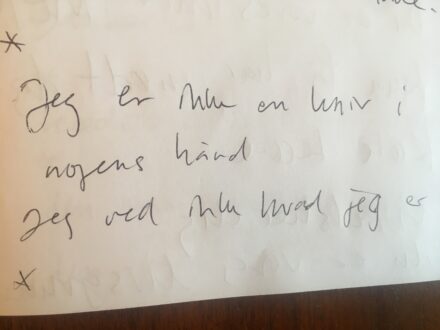 *
Jeg er ikke en kniv i
nogens hånd
Jeg ved ikke hvad jeg er
*